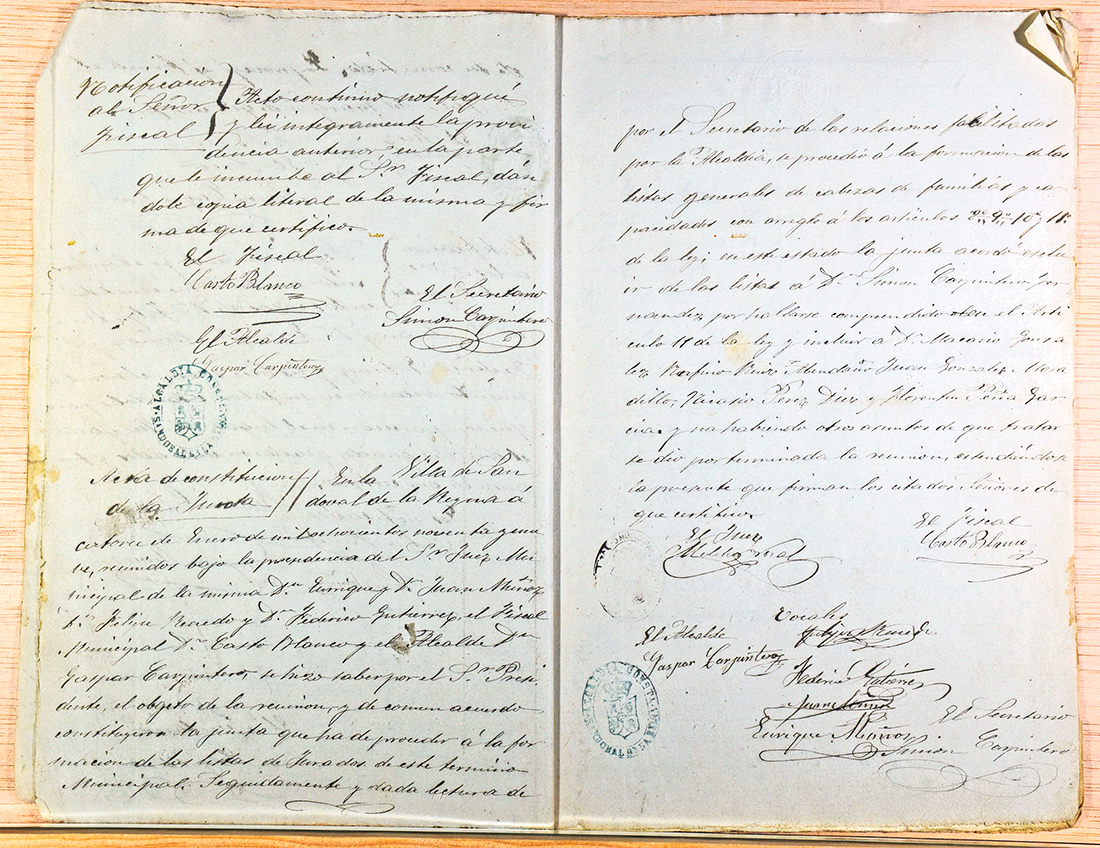 Notificacion
al Señor
Fiscal
Acto continuo notifiqué
y lei integramente la provi
dencia anterior en la parte
que le incumbe al Sr. Fiscal, dán
dole copia literal de la misma y fir
ma de que certifico.
El Fiscal
Casto Blanco
El Secretario
Simon Carpintero
El Alcalde
Gaspar Carpintero
Acta de constitucion
de la Junta
En la Villa de San
doval de la Reyna á
catorce de Enero de mil ochocientos noventa y nue
ve, reunidos bajo la presidencia del Sr. Juez Mu
nicipal de la misma Dn. Enrique y Dn. Juan Muñoz
Dn. Felipe y Dn. Federico Gutierrez, el Fiscal
Municipal Dn. Casto Blanco y el Alcalde Dn.
Gaspar Carpintero, se hizo saber por el Sr. Presi
dente, el objeto de la reunion, y de comun acuerdo
constituyeron la junta que ha de proceder á la for
macion de las listas de Jurados de este termino
Municipal. Seguidamente y dada lectura de
por el Secretario de las relaciones facilitadas
por la Alcaldia, se procedió á la formacion de las
listas generales de cabezas de familias y ca
pacidades con arreglo á los articulos 9º 10º y 11º
de la ley: en este estado la junta acordó exclu
ir de las listas á Dn. Simon Carpintero Fer
nandez por hallarse comprendido en el Arti
culo 11 de la ley é incluir á Dn. Macario Gonza
lez Juan Gonzalez
Nicasio Perez Diez y Florentin Peña Gar
cia. y no habiendo otros asuntos de que tratar
se dio por terminada la reunion, estendiendose
la presente que firman los citados Señores de
que certifico.
El Juez
El Fiscal
Casto Blanco
Vocales
El Alcalde
Gaspar Carpintero
Federico Gutierrez
Juan Muñoz
Enrique Muñoz
El Secretario
Simon Carpintero